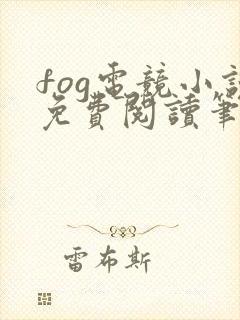 fog電競小說
免費閱讀筆
雷布斯